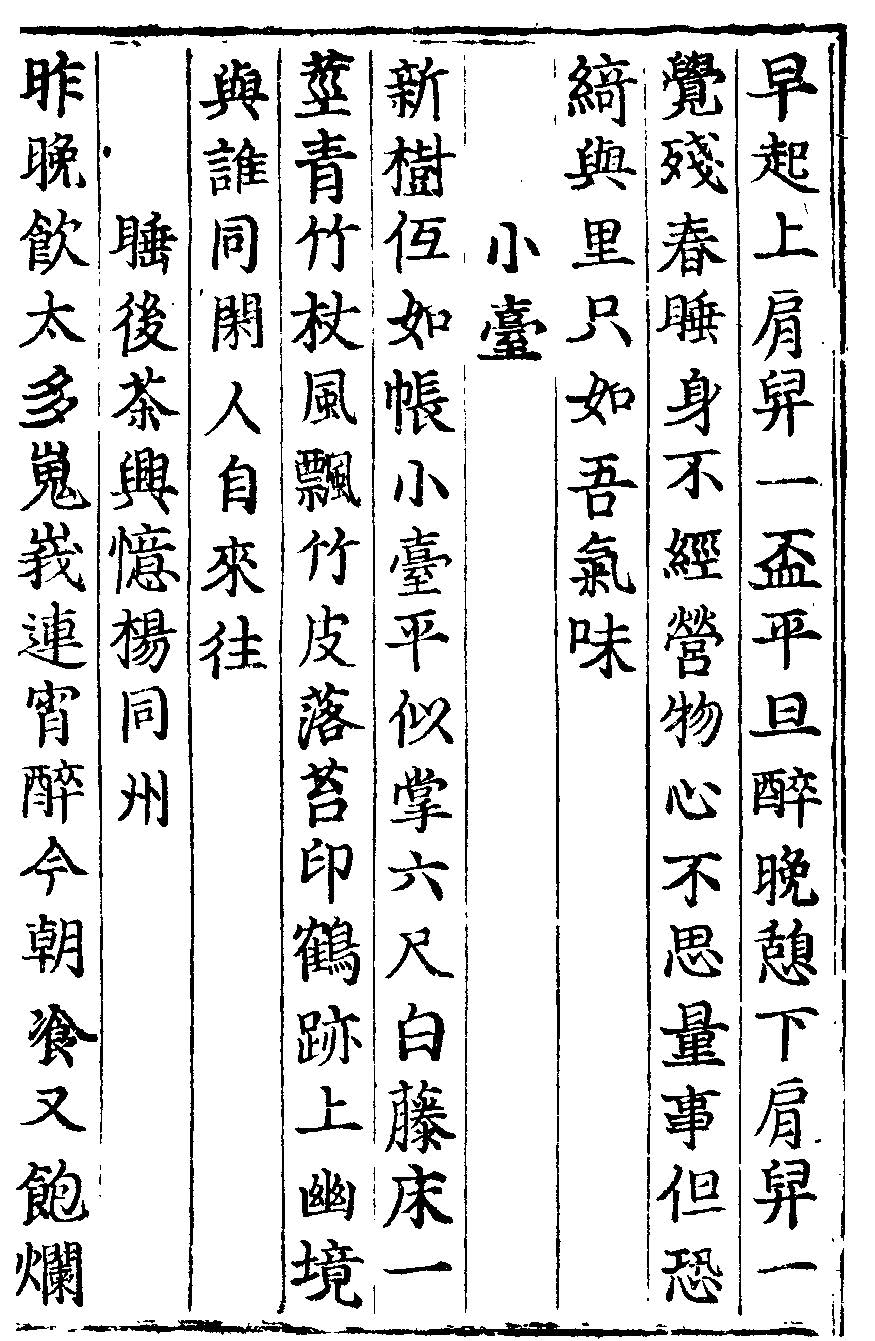 早起上肩舁一盃平旦醉晚憩下肩舁一
覺殘春睡身不經營物心不思量事但恐
綺與里只如吾氣味
小臺
新樹低如帳小臺平似掌六尺白藤床一
莖青竹杖風飄竹皮落苔印鶴跡上幽境
與誰同閑人自來往
睡後茶興憶楊同州
昨晚飲太多嵬峩連宵醉今朝飡又飽爛